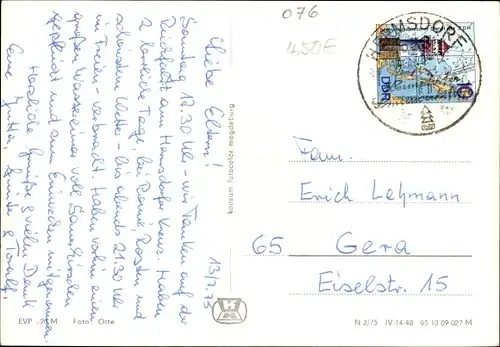 076
1,50€
HUMSDORF
DDR
10
Liebe Eltern!
13/7.75
Samstag 17.30 Uhr - wir Tanken auf der
Rückfahrt am Hermsdorfer Kreuz. Haben
2 herrliche Tage, bei
schönstem Wetter - bis abends 21.30 Uhr
im Freien - verbracht. Haben vorhin einen
großen Wassereimer voll Sauerkirschen
gepflückt und zum Einwecken mitgenommen.
Herzliche Grüße & vielen Dank
Eure Jutta, &
konsum fotocolor magdeburg
Fam.
Erich Lehmann
65 Gera
Eiselstr. 15
EVP -,20 M Foto: Orte
N 2/75 IV-14-48 05 10 09 027 M